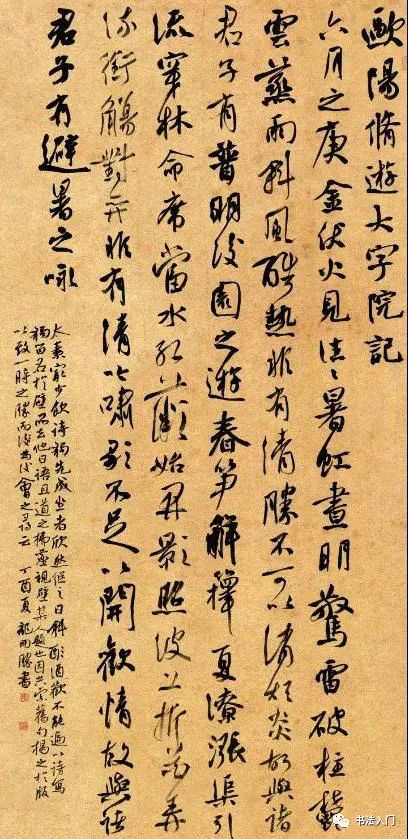 歐陽脩遊大字院記
六月之庚金伏火見往〻暑虹晝明驚雷破柱鬱
雲蒸雨斜風酷熱非有清勝不可以消煩炎故與諸
君子有普明後園之遊春筍解籜夏潦漲渠引
流穿林命席當水紅薇始開影照波上折花弄
流銜觴對弈非有清吟嘯歌不足以開歡情故與諸
君子有避暑之咏
太素最少飲詩獨先成坐者欣然繼之日斜酣酒歡不能遍以詩寫
獨留名於壁而去他日語且道之拂塵視壁某人題也因共索舊句揭之於版
以致一時之勝而爲後會之尋云 丁酉夏 書
书法入门